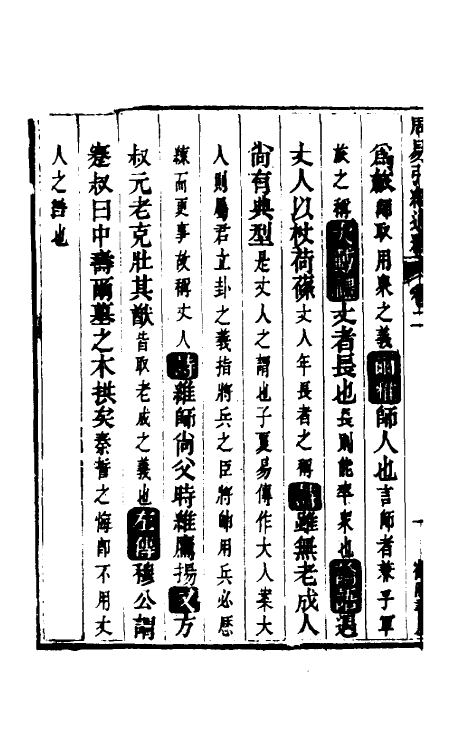 周易引經通釋 卷二
師取用衆之義爾雅師人也言師者兼乎軍
旅之稱大戴禮丈者長也長則能率衆也論語遇
丈人以杖荷蓧丈人年長者之稱詩雖無老成人
尚有典型是丈人之謂也子夏易傳作大人案大
人則屬君立卦之義指將兵之臣將帥用兵必歷
練而更事故稱丈人詩維師尚父時維鷹揚又方
叔元老克壯其猷皆取老成之義也左傳穆公謂
蹇叔曰中壽爾墓之木拱矣秦誓之悔卽不用丈
人之證也